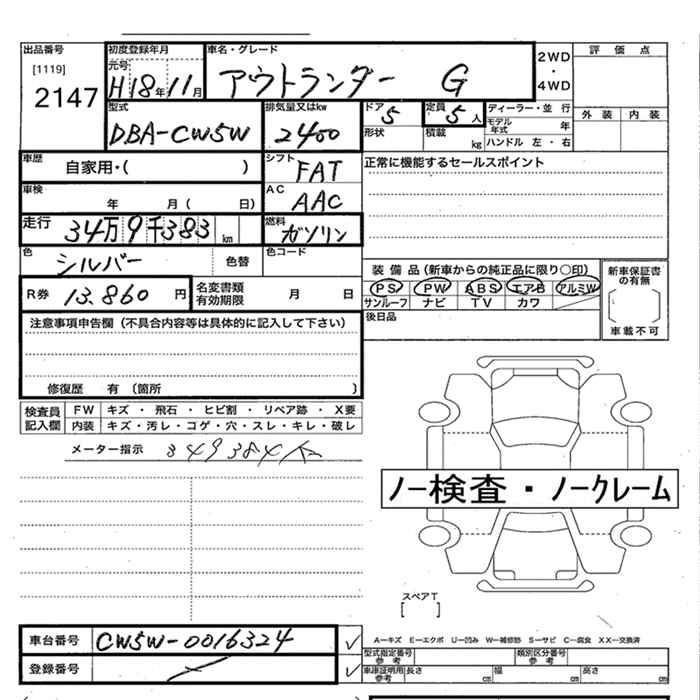 出品番号 [1119] 2147
初度登録年月 元号 H18年11月
車名・グレード アウトランダー G
2WD・4WD
評価点
外装 内装
型式 DBA-CW5W
排気量又はkw 2400
ドア 5
形状
定員 5人
積載 kg
ディーラー・並行
モデル年式 年
ハンドル 左・右
車歴 自家用・( )
シフト FAT
正常に機能するセールスポイント
車検 年 月( 日)
AC AAC
走行 34万9千383km
燃料 ガソリン
色 シルバー 色替
色コード
装備品(新車からの純正品に限り○印)
PS PW ABS エアB アルミW
サンルーフ ナビ TV カワ
新車保証書の有無
車載不可
R券 13.860円
名変書類有効期限 月 日
後日品
注意事項申告欄(不具合内容等は具体的に記入して下さい)
修復歴 有 (箇所 )
検査員記入欄
FW キズ・飛石・ヒビ割・リペア跡・X要
内装 キズ・汚レ・コゲ・穴・スレ・キレ・破レ
メーター指示 349384
ノー検査・ノークレーム
スペアT
[ ]
車台番号 CW5W-0016324 ✓
登録番号 ✓
A―キズ E―エクボ U―凹み W―補修跡 S―サビ C―腐食 XX―交換済
型式指定番号 参考
類別区分番号 参考
車庫証明用 参考 長さ cm 幅 cm 高さ cm